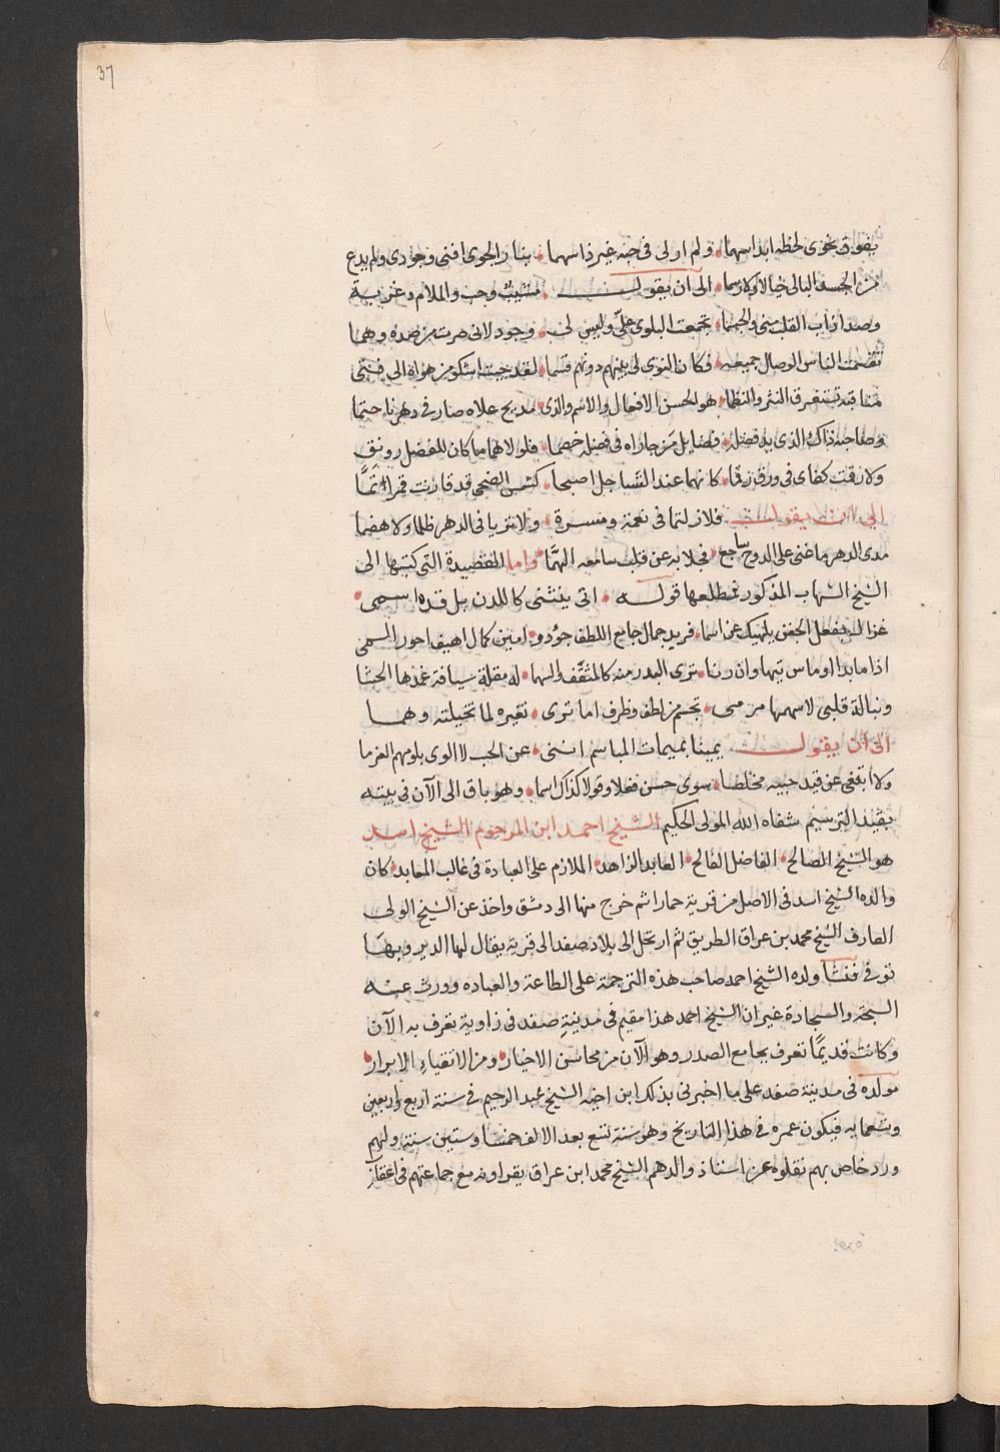 37
يفوق نحوى لحظه ابدا سهما ولم ار لى فى حبه غير ذا سهما بنار الجوى افنى وجودى ولم يدع
من الجسد البالى خيالا ولا رسما الى ان يقول مشيب وحب والملام وغربة
وصد اذاب القلب منى والجسما تجمعت البلوى علىّ وليس لى وجود لانى مرت من ضده وهما
تقسمت الناس الوصال جميعه فكان النوى لى بينهم دونهم قسما لقد جيت اشكو من هواه الى فتى
مناقبه تستغرق النثر والنظما هو الحسن الافعال والاسم والذى مديح علاه صار فى دهرنا حتما
وصاحبه ذاك الذى فضله فضايل من جاراه فى فضله خصما فلولاهما ما كان للفضل رونق
ولا رقت كفاى فى ورق رقا كانهما عند التساجل اصبحا كشمس الضحى قد قارنت قمرا تما
الى ان يقول فلا زلتما فى نعمة ومسرة ولا تريا فى الدهر ظلما ولا هضما
مدى الدهر ما غنى على الدوح ساجع فجلا به عن قلب سامعه الهما واما القصيدة التى كتبها الى
الشيخ الشهاب المذكور فمطلعها قوله اتى ينثنى كاللدن بل قده اسمى
غزال بفعل الجفن يلهيك عن اسما فريد جمال جامع اللطف جوذر امين كمال اهيف احور المى
اذا ما بدا او ماس تيها وان رنا ترى البدر منه كالمثقف والسهما له مقلة سيافة غمدها الحشا
ونبالة قلبى لاسهمها مرمى تجسم من لطف وظرف اما ترى تغيره لما تخيلته وهما
الى ان يقول يمينا بميمات المباسم اننى عن الحب لا الوى بلومهم العزما
ولا ابتغى عن قيد حبيه مخلصا سوى حسن فعلا وقولا كذاك اسما وهو باق الى الآن فى بيته
بقيد الترسيم شفاه الله المولى الحكيم الشيخ احمد ابن المرحوم الشيخ اسد
هو الشيخ الصالح الفاضل الفالح العابد الزاهد الملازم على العبادة فى غالب المعابد كان
والده الشيخ اسد فى الاصل من قرية حمارا ثم خرج منها الى دمشق واخذ عن الشيخ الولى
العارف الشيخ محمد بن عراق الطريق ثم ارتحل الى بلاد صفد الى قرية يقال لها الدير وبها
توفى فنشا ولده الشيخ احمد صاحب هذه الترجمة على الطاعة والعباده وورث عنه
السبحة والسجادة غير ان الشيخ احمد هذا مقيم فى مدينة صفد فى زاوية تعرف به الآن
وكانت قديمًا تعرف بجامع الصدر وهو الآن من محاسن الاخيار ومن الاتقياء الابرار
مولده فى مدينة صفد على ما اخبرنى بذلك ابن اخيه الشيخ عبد الرحيم فى سنة اربع واربعين
وتسعمايه فيكون عمره فى هذا التاريخ وهو سنة تسع بعد الالف خمسا وستين سنة ولهم
ورد خاص بهم نقلوه عن استاذ والدهم الشيخ محمد ابن عراق يقراونه مع جماعتهم فى اعقاب